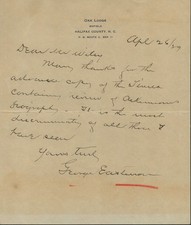 OAK LODGE
HALIFAX COUNTY, N. C.
Dear Mr Wiley
Many thanks for the
advance copy of the Times
containing review of Ackerman
biography. It is the most
discriminating of all those I
have seen
Yours truly
George Eastman